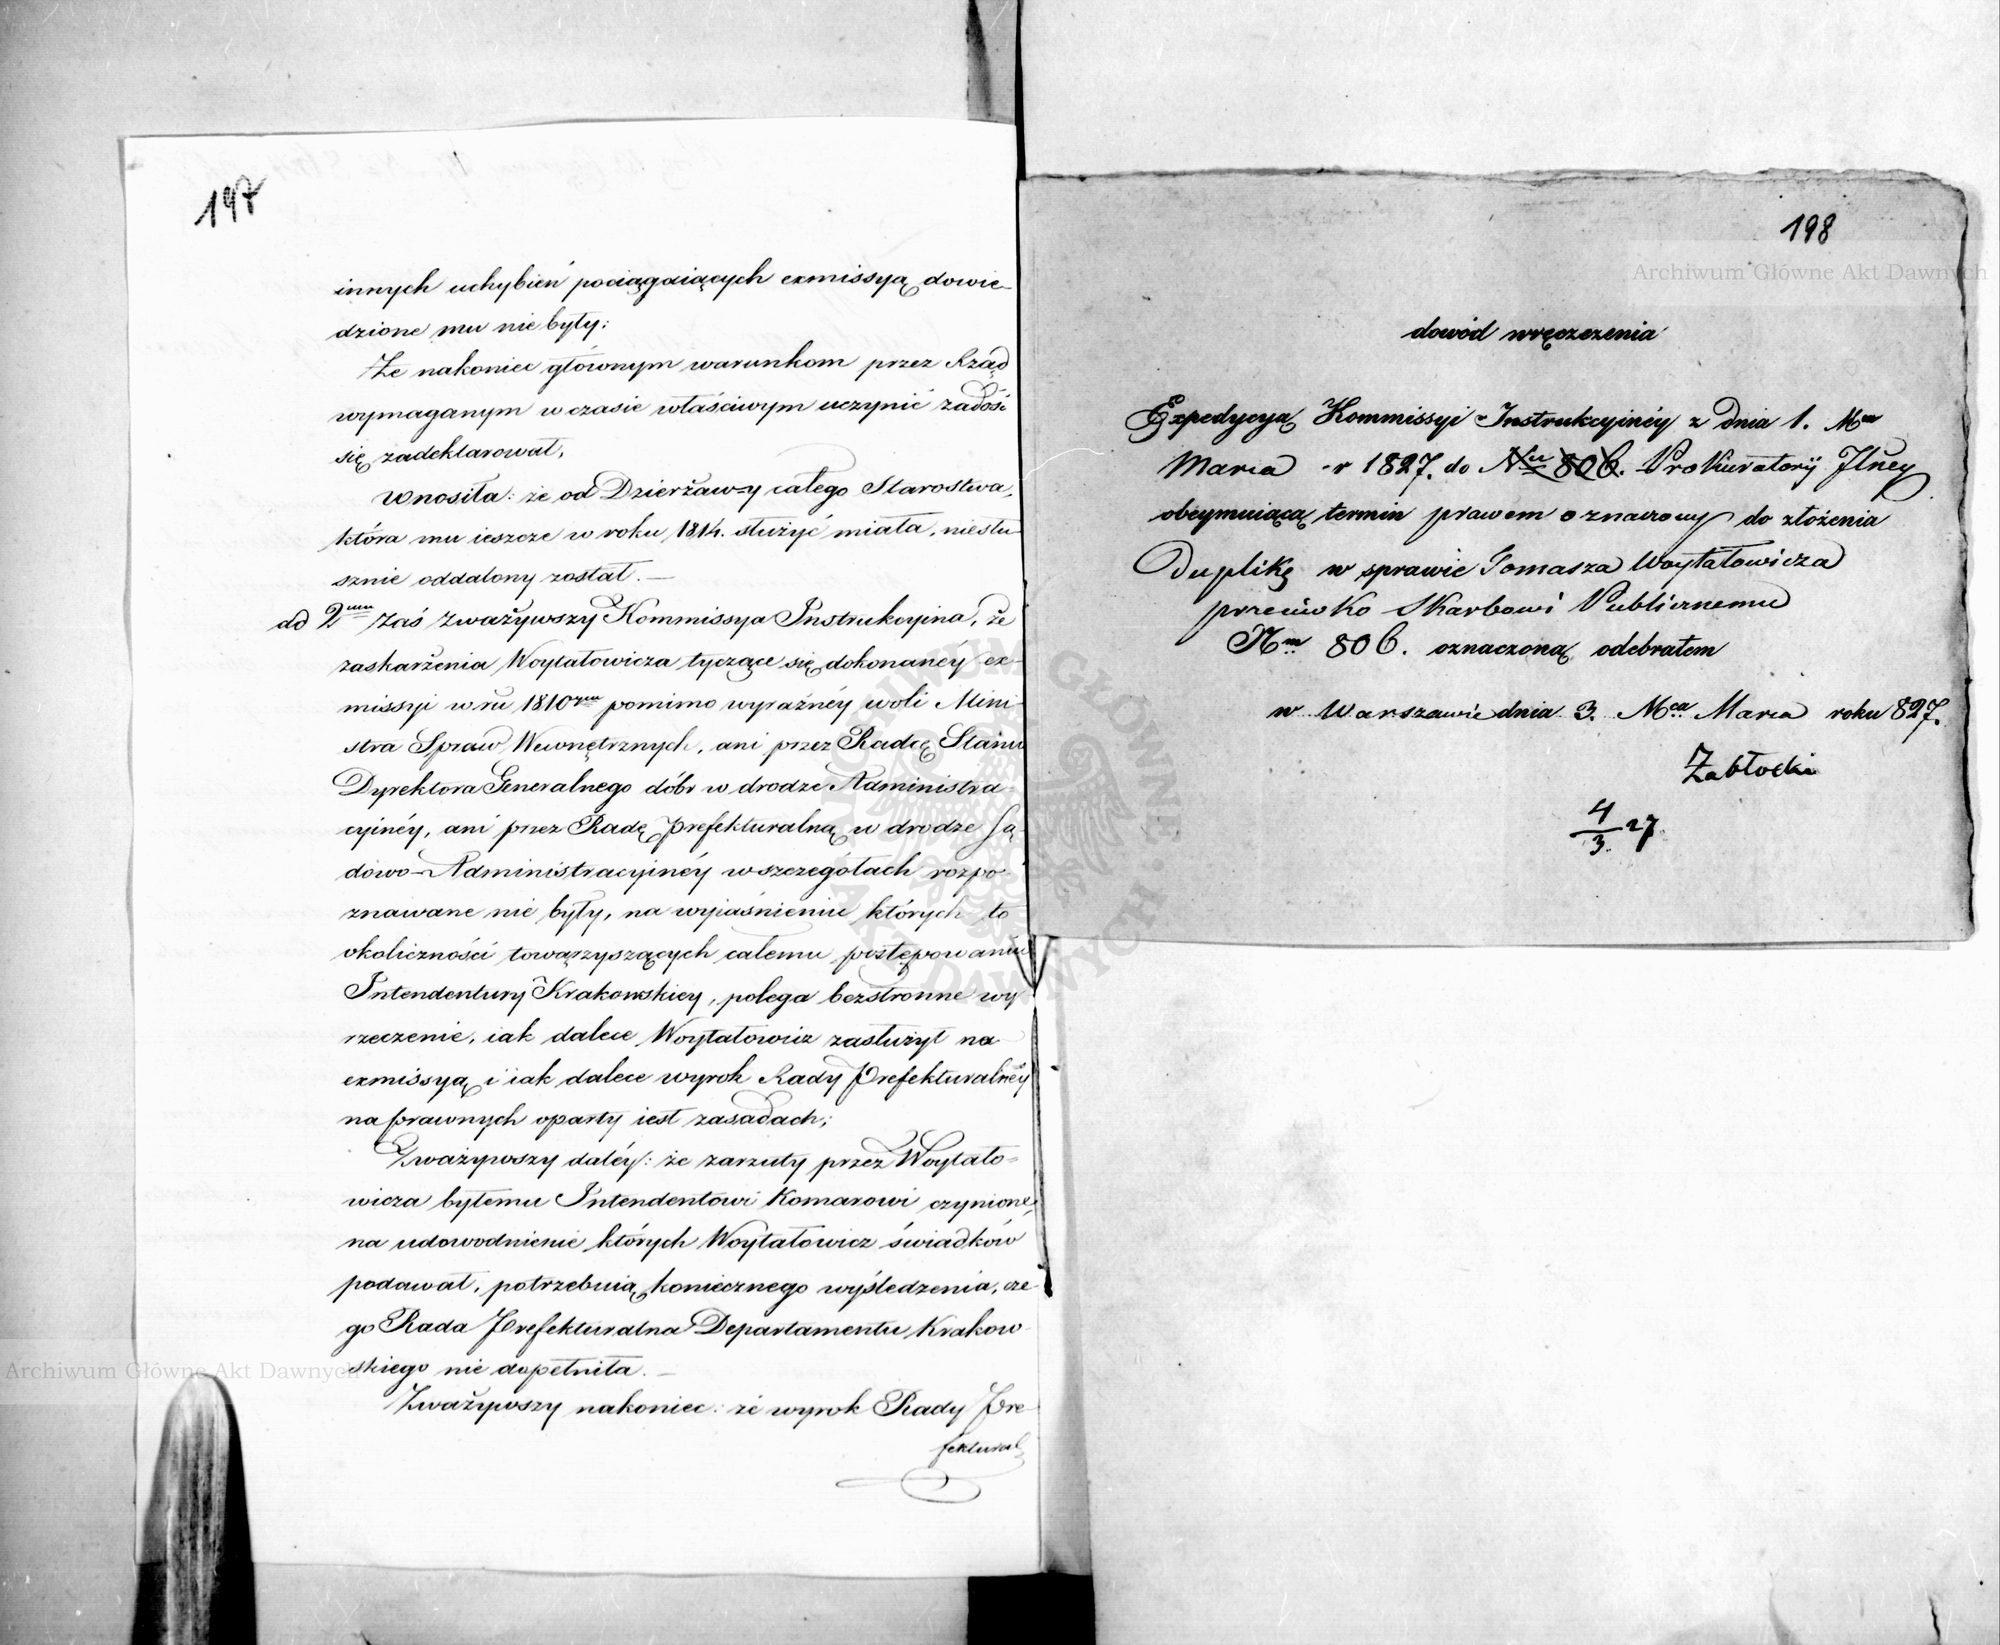 197
innych uchybień pociągaiących exmissyą dowie-
dzione mu nie były:
Że nakoniec głównym warunkom przez Rząd
wymaganym w czasie właściwym uczynić zadość
się zadeklarował,
Wnosiła: że od Dzierżawy całego Starostwa,
która mu ieszcze w roku 1814. służyć miała, niesłu-
sznie oddalony został. —
ad 2um zaś zważywszy Kommissya Instrukcyina, że
zaskarżenia Woytałowicza tyczące się dokonanéy ex-
missyi w ru 1810ym pomimo wyraźnéy woli Mini-
stra Spraw Wewnętrznych, ani przez Radcę Stanu
Dyrektora Generalnego dóbr w drodze Administra-
cyinéy, ani przez Radę Prefekturalną w drodze Są-
dowo-Administracyinéy w szczegółach rozpo-
znawane nie były, na wyiaśnieniu których to
okoliczności towarzyszących całemu postępowaniu
Intendentury Krakowskiey, polega bezstronne wy
rzeczenie, iak dalece Woytałowicz zasłużył na
exmissyą i iak dalece wyrok Rady Prefekturalnéy
na prawnych oparty iest zasadach;
Zważywszy daléy: że zarzuty przez Woytało-
wicza byłemu Intendentowi Komarowi czynione,
na udowodnienie których Woytałowicz świadków
podawał, potrzebuią koniecznego wyśledzenia, cze-
go Rada Prefekturalna Departamentu Krakow-
skiego nie dopełniła. —
Zważywszy nakoniec: że wyrok Rady Pre-
fektural
198
dowód wręczenia
Expedycyą Kommissyi Instrukcyinéy z dnia 1. Mca
Marca r 1827. do Nru 806. Prokuratoryi Jlney
obeymuiącą termin prawem oznaczony do złożenia
Duplikę w sprawie Tomasza Woytałowicza
przeciwko Skarbowi Publicznemu
Nm 806. oznaczoną odebrałem
w Warszawie dnia 3. Mca Marca roku 827.
Zabłocki
4/3. 27.
Archiwum Główne Akt Dawnych
Archiwum Główne Akt Dawnych
ARCHIWUM GŁÓWNE AKT DAWNYCH